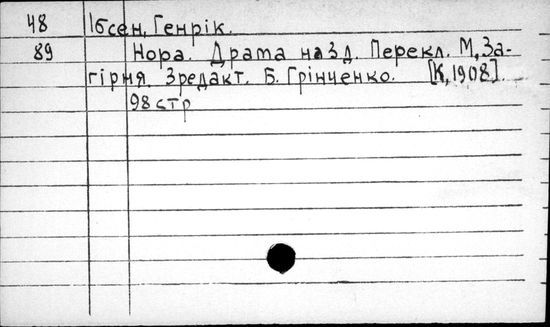 48 Ібсен, Генрік.
89 Нора. Драма на 3 д. Перекл. М. За-
гірня. Зредакт. Б. Грінченко. [К, 1908].
98 стр